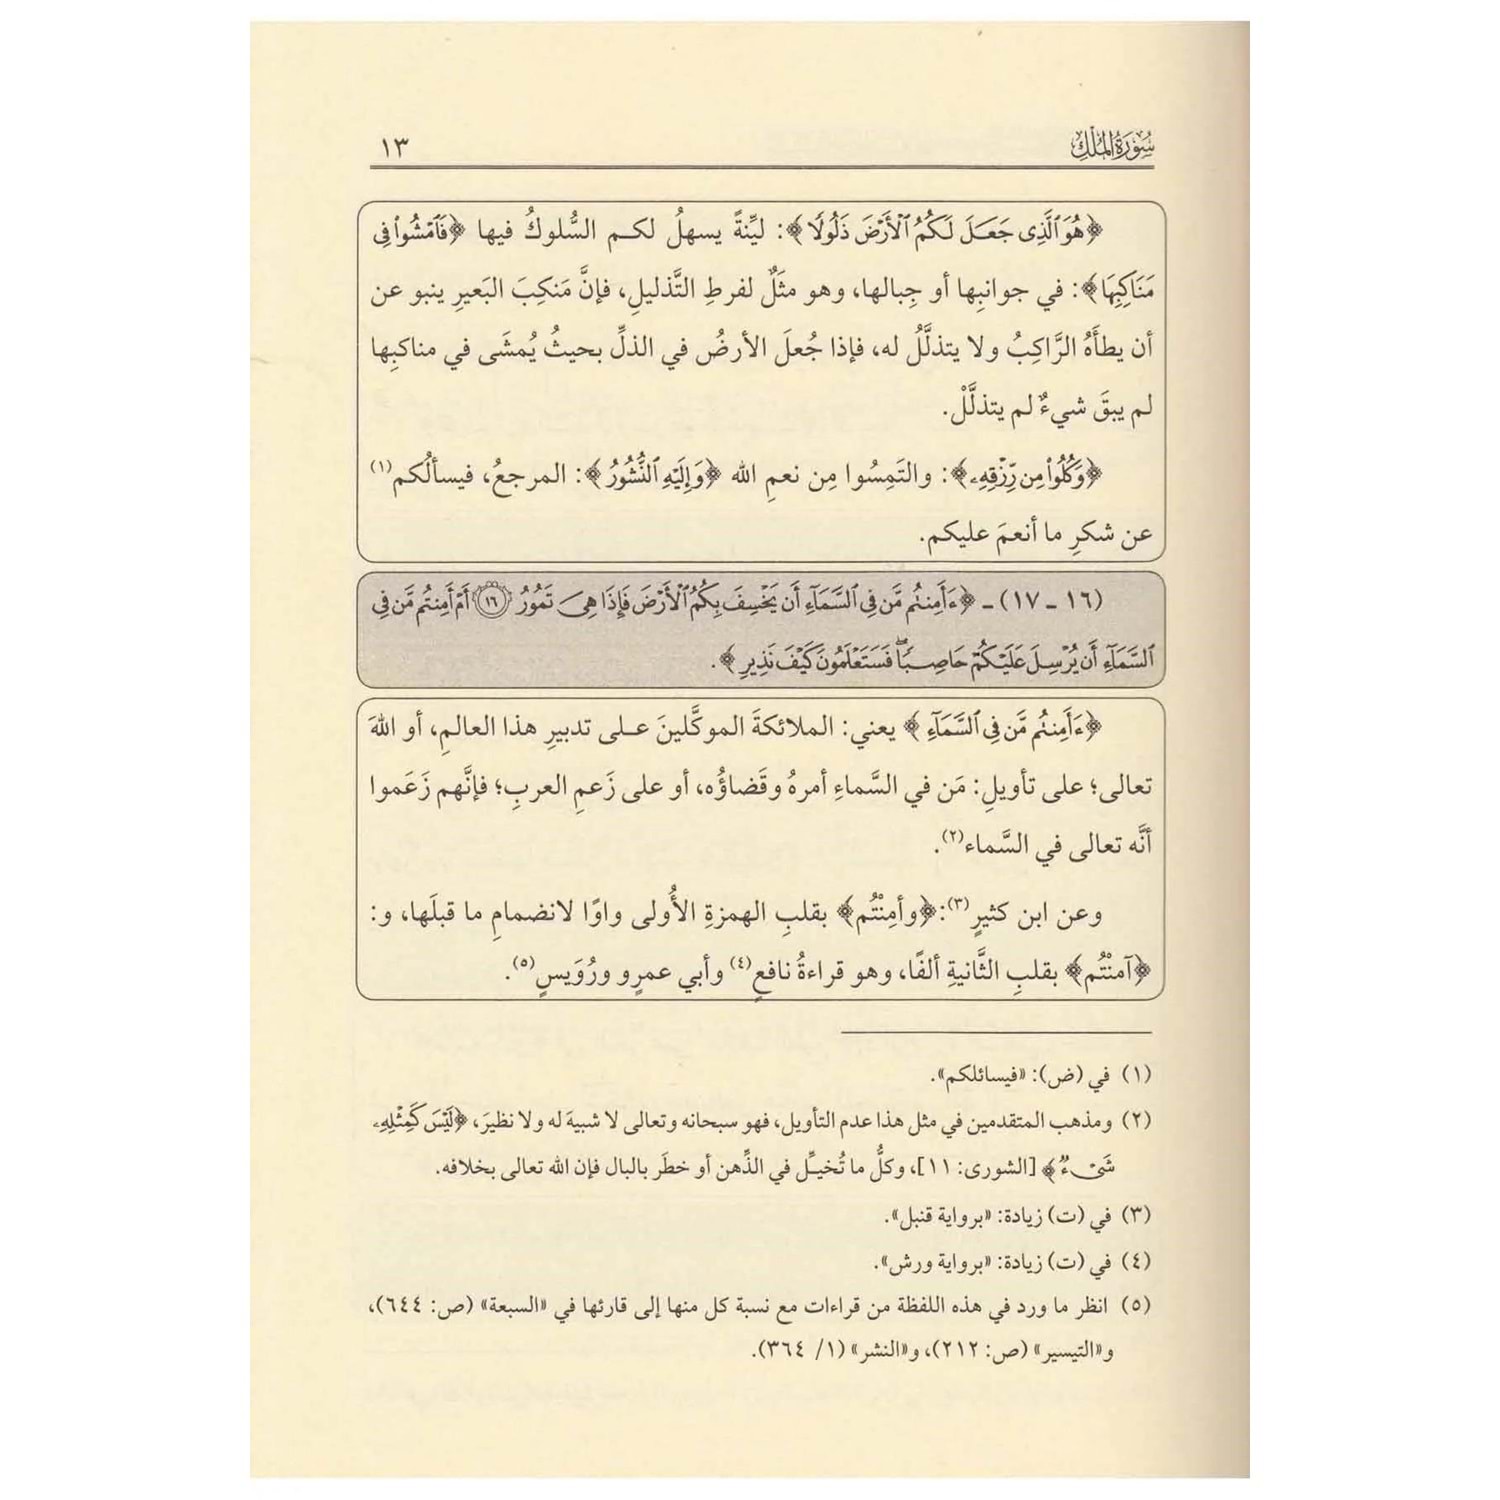 سُورَةُ الْمُلْكِ
١٣
﴿هُوَ ٱلَّذِى جَعَلَ لَكُمُ ٱلْأَرْضَ ذَلُولًا﴾: ليِّنةً يسهلُ لكم السُّلوكُ فيها ﴿فَٱمْشُوا۟ فِى
مَنَاكِبِهَا﴾: في جوانبِها أو جِبالها، وهو مثَلٌ لفرطِ التَّذليلِ، فإنَّ مَنكِبَ البَعيرِ ينبو عن
أن يطأَهُ الرَّاكِبُ ولا يتذلَّلُ له، فإذا جُعلَ الأرضُ في الذلِّ بحيثُ يُمشَى في مناكبِها
لم يبقَ شيءٌ لم يتذلَّلْ.
﴿وَكُلُوا۟ مِن رِّزْقِهِۦ﴾: والتَمِسُوا مِن نعمِ الله ﴿وَإِلَيْهِ ٱلنُّشُورُ﴾: المرجعُ، فيسألُكم(١)
عن شكرِ ما أنعمَ عليكم.
(١٦ - ١٧) - ﴿ءَأَمِنتُم مَّن فِى ٱلسَّمَآءِ أَن يَخْسِفَ بِكُمُ ٱلْأَرْضَ فَإِذَا هِىَ تَمُورُ ١٦ أَمْ أَمِنتُم مَّن فِى
ٱلسَّمَآءِ أَن يُرْسِلَ عَلَيْكُمْ حَاصِبًا ۖ فَسَتَعْلَمُونَ كَيْفَ نَذِيرِ﴾.
﴿ءَأَمِنتُم مَّن فِى ٱلسَّمَآءِ﴾ يعني: الملائكةَ الموكَّلينَ على تدبيرِ هذا العالمِ، أو اللهَ
تعالى؛ على تأويلِ: مَن في السَّماءِ أمرهُ وقَضاؤُه، أو على زَعمِ العربِ؛ فإنَّهم زَعَموا
أنَّه تعالى في السَّماء(٢).
وعن ابن كثيرٍ(٣): ﴿وأمِنْتُم﴾ بقلبِ الهمزةِ الأُولى واوًا لانضمامِ ما قبلَها، و:
﴿آمنْتُم﴾ بقلبِ الثَّانيةِ ألفًا، وهو قراءةُ نافعٍ(٤) وأبي عمرٍو ورُوَيسٍ(٥).
(١) في (ض): «فيسائلكم».
(٢) ومذهب المتقدمين في مثل هذا عدم التأويل، فهو سبحانه وتعالى لا شبيهَ له ولا نظيرَ، ﴿لَيْسَ كَمِثْلِهِۦ
شَىْءٌ﴾ [الشورى: ١١]، وكلُّ ما تُخيـِّل في الذِّهن أو خطَر بالبال فإن الله تعالى بخلافه.
(٣) في (ت) زيادة: «برواية قنبل».
(٤) في (ت) زيادة: «برواية ورش».
(٥) انظر ما ورد في هذه اللفظة من قراءات مع نسبة كل منها إلى قارئها في «السبعة» (ص: ٦٤٤)،
و«التيسير» (ص: ٢١٢)، و«النشر» (١/ ٣٦٤).